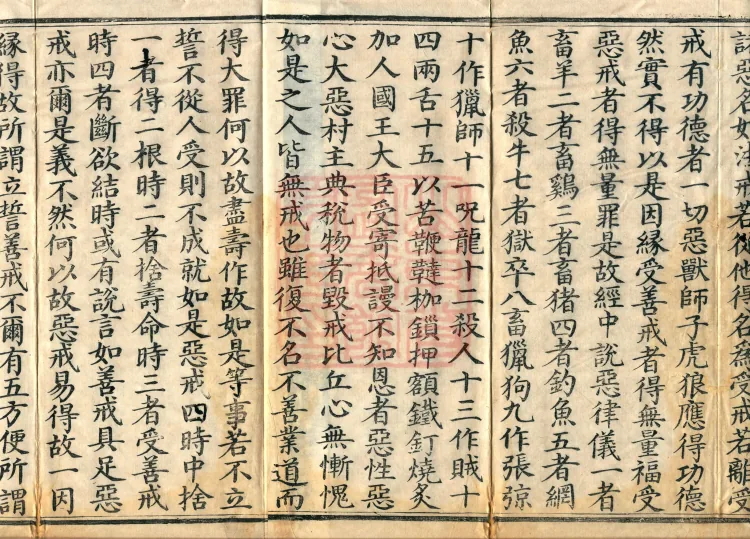 惡名如法戒若從他得名爲受戒若離受
戒有功德者一切惡獸師子虎狼應得功德
然實不得以是因緣受善戒者得無量福受
惡戒者得無量罪是故經中說惡律儀一者
畜羊二者畜鷄三者畜猪四者釣魚五者網
魚六者殺牛七者獄卒八畜獵狗九作張弶
十作獵師十一呪龍十二殺人十三作賊十
四兩舌十五以苦鞭韃枷鎖押額鐵釘燒炙
加人國王大臣受寄抵謾不知恩者惡性惡
心大惡村主典稅物者毀戒比丘心無慚愧
如是之人皆無戒也雖復不名不善業道而
得大罪何以故盡壽作故如是等事若不立
誓不從人受則不成就如是惡戒四時中捨
一者得二根時二者捨壽命時三者受善戒
時四者斷欲結時或有說言如善戒具足惡
戒亦爾是義不然何以故惡戒易得故一因
緣得故所謂立誓善戒不爾有五方便所謂